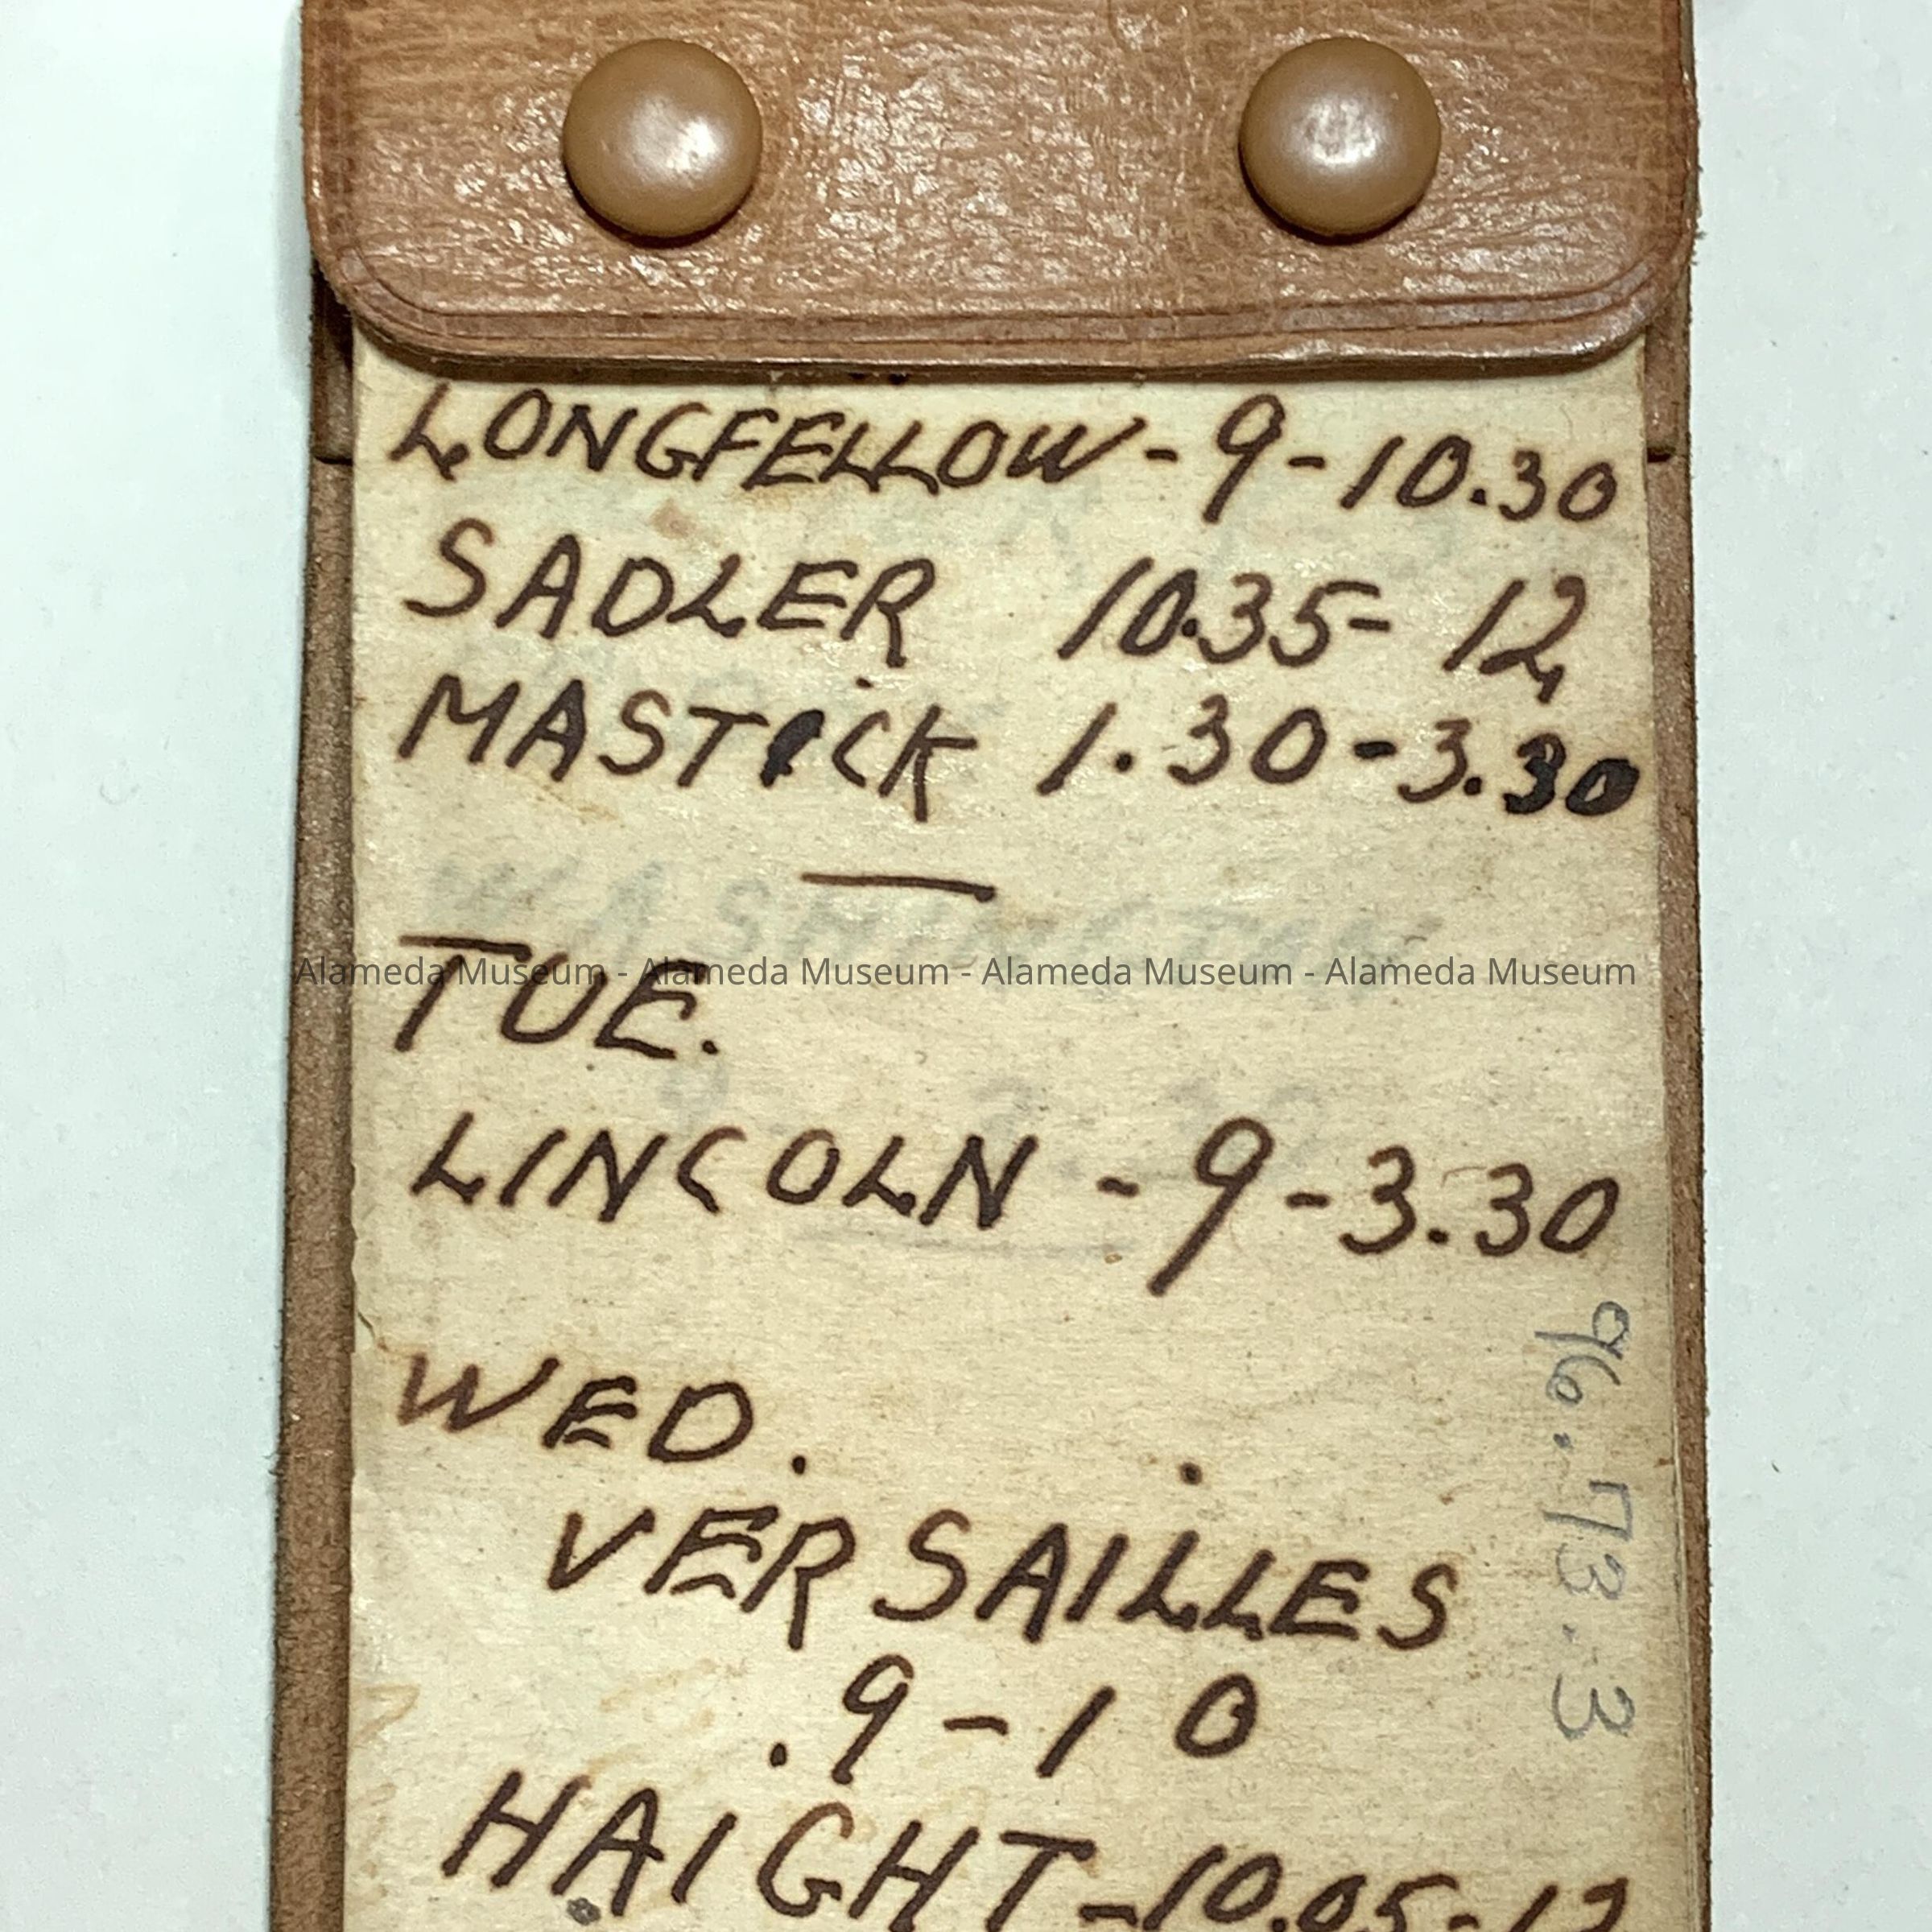 LONGFELLOW - 9 - 10.30
SADLER 10.35 - 12
MASTICK 1.30 - 3.30
—
WASHINGTON
Alameda Museum - Alameda Museum - Alameda Museum - Alameda Museum
TUE.
LINCOLN - 9 - 3.30
WED.
VERSAILLES
.9 - 10
HAIGHT - 10.05 - 12
96.73.3